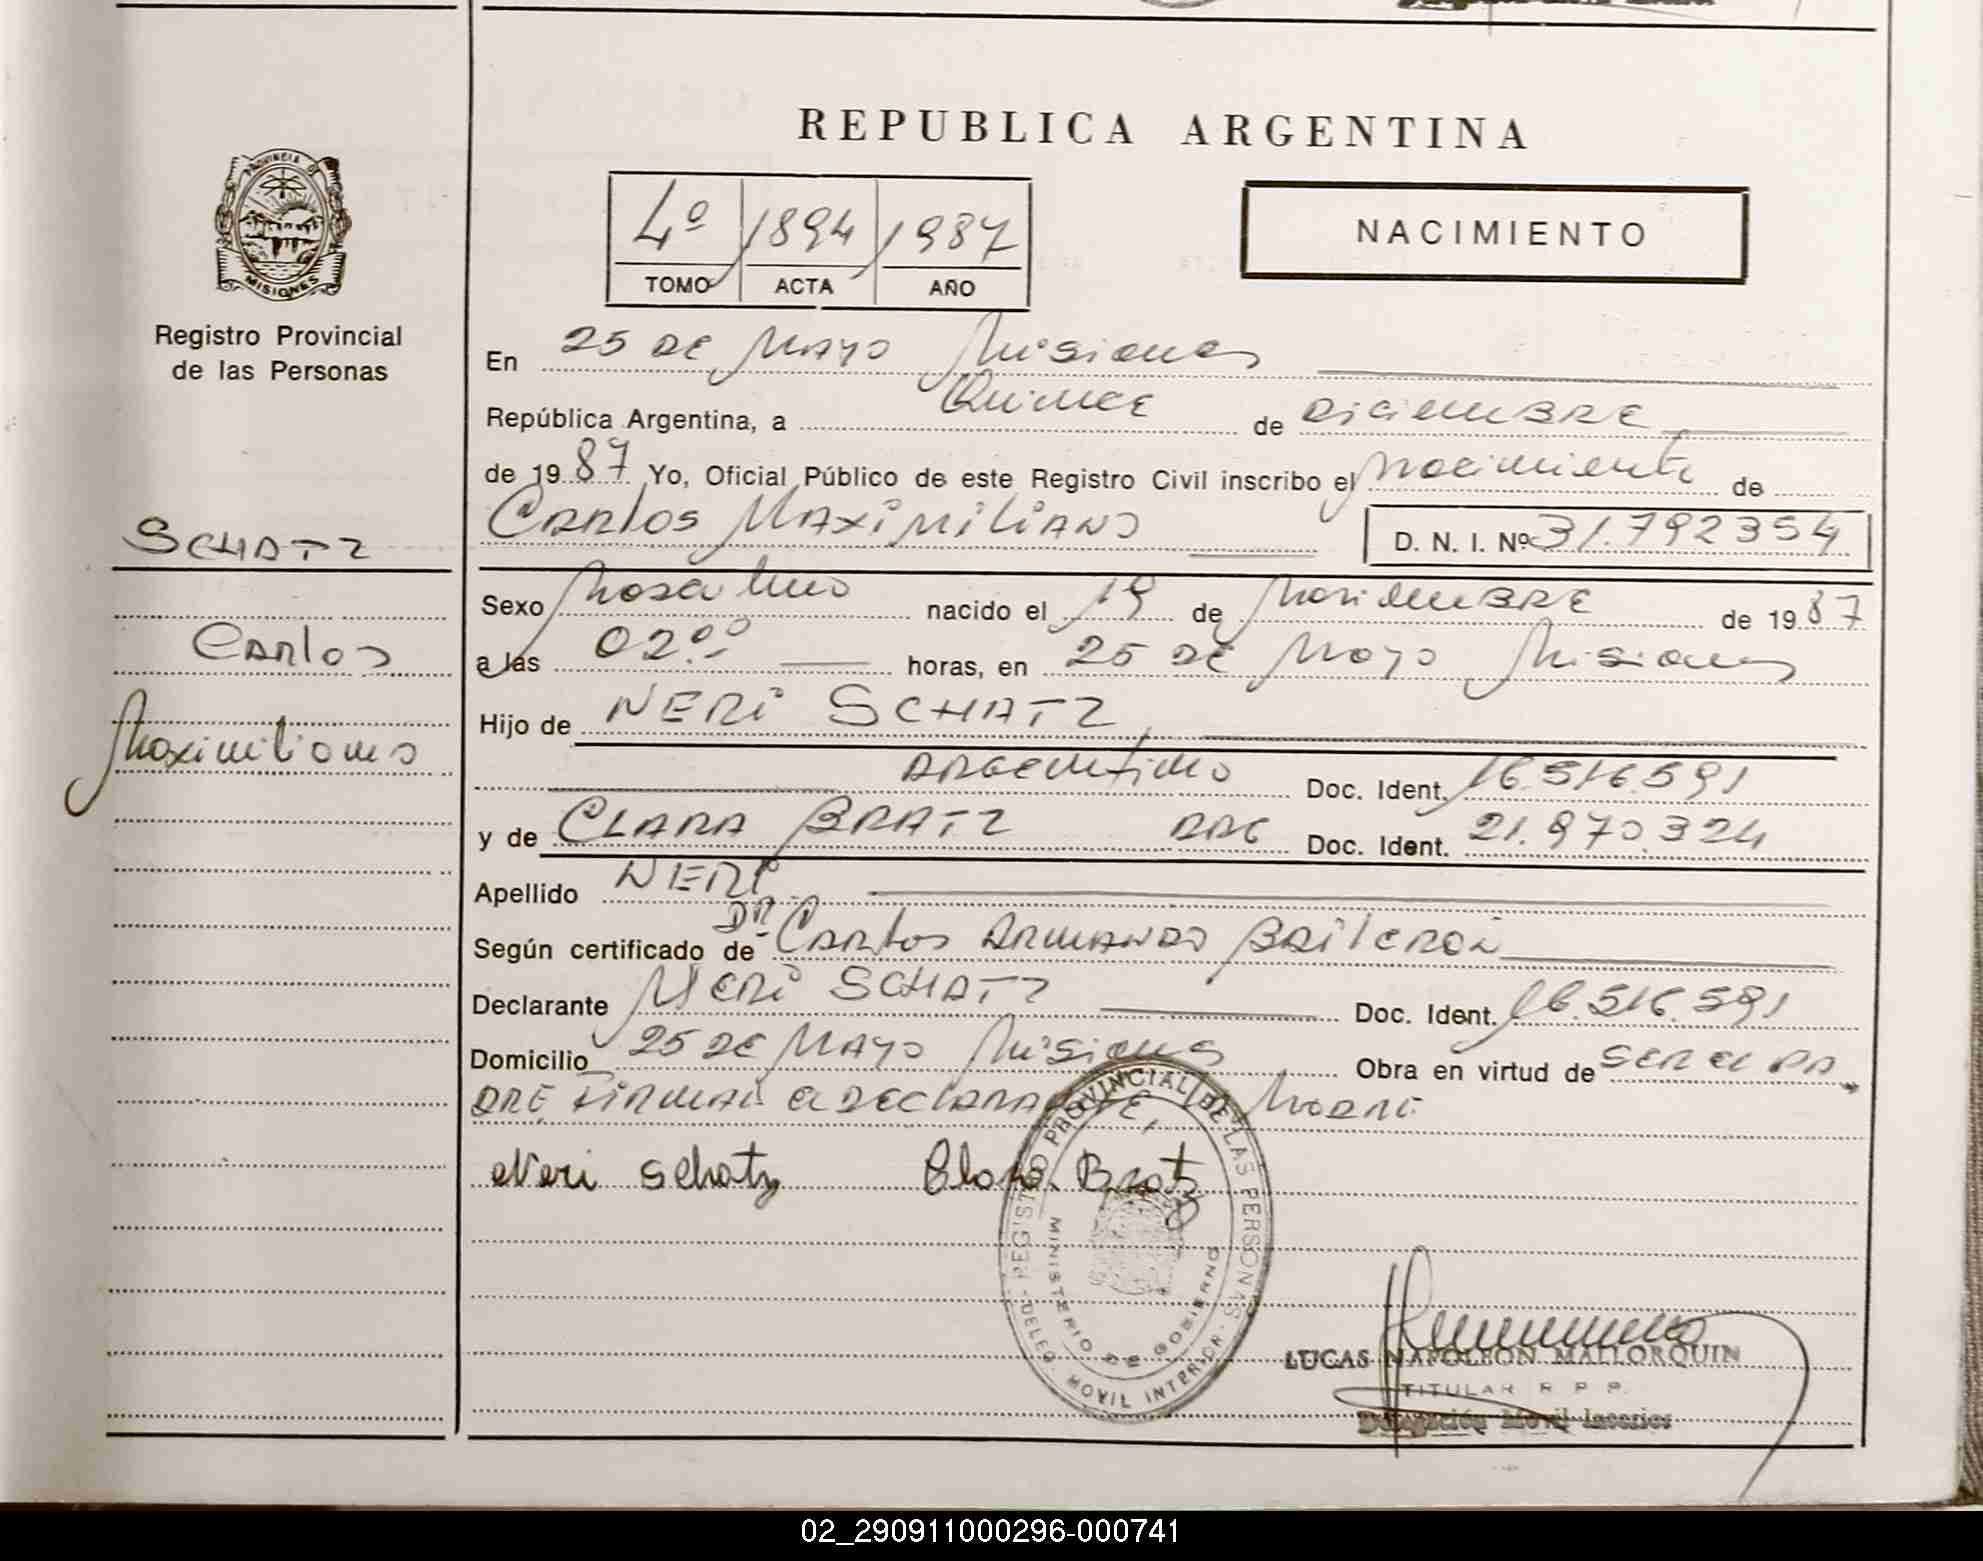 REPUBLICA ARGENTINA
PROVINCIA DE
MISIONES
Registro Provincial
de las Personas
4º 1894 1987
TOMO ACTA AÑO
NACIMIENTO
En 25 DE MAYO Misiones
República Argentina, a Quince de DiciemBRE
de 1987 Yo, Oficial Público de este Registro Civil inscribo el Nacimiento de
CARlos MAXiMiliANO
D. N. I. Nº 31.792354
SCHATZ
Carlos
Maximiliano
Sexo Masculino nacido el 19 de NoviemBRE de 1987
a las 02ºº horas, en 25 DE Mayo Misiones
Hijo de NERi SCHATZ
ARGENtiNo Doc. Ident. 16.516.591
y de CLARA BRATZ ARG Doc. Ident. 21.970.324
Apellido NERi
Según certificado de DR. CARlos ARMANDO
Declarante NERi SCHATZ Doc. Ident. 16.516.591
Domicilio 25 DE MAYO Misiones Obra en virtud de SER el PA
DRE FiRMAN el DEClARANTE, MADRE
Neri Schatz Clara Bratz
REGISTRO PROVINCIAL DE LAS PERSONAS
MINISTERIO DE GOBIERNO
-DELEG. MOVIL INTERIOR-
LUCAS NAPOLEON MALLORQUIN
TITULAR R. P. P.
Delegación Movil Interior
02_290911000296-000741